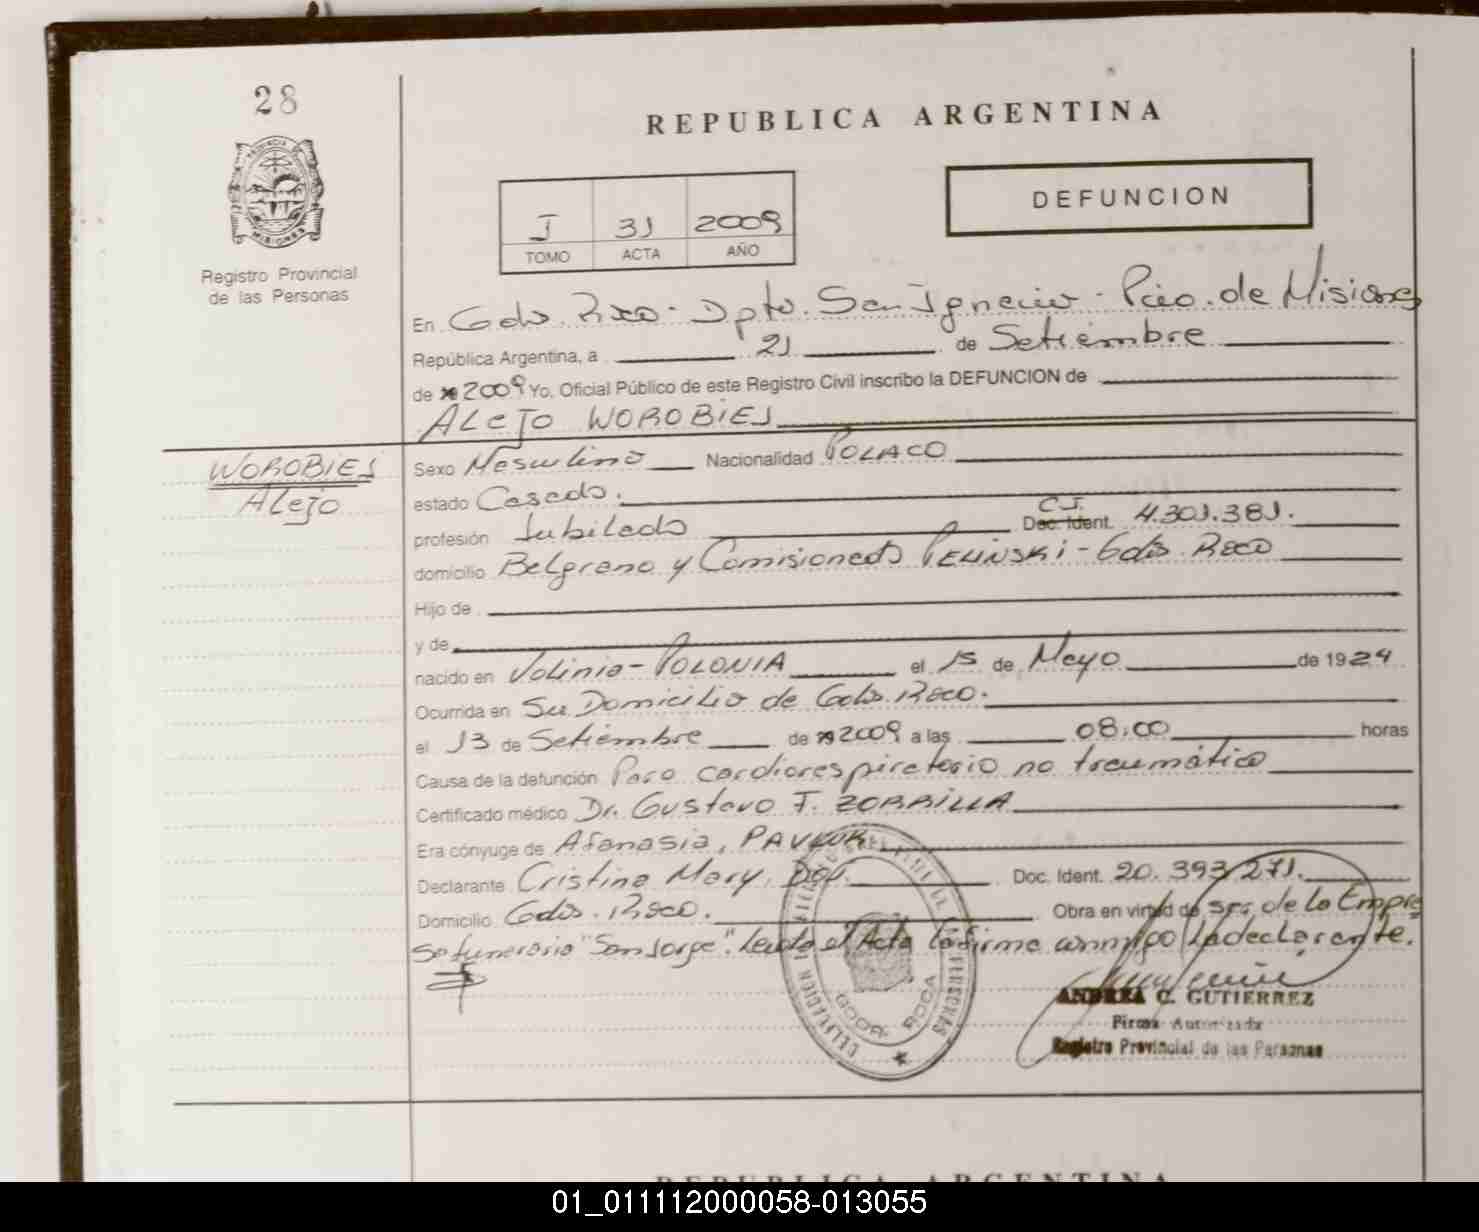 28
PROVINCIA DE
MISIONES
Registro Provincial
de las Personas
REPUBLICA ARGENTINA
DEFUNCION
I 31 2009
TOMO ACTA AÑO
En Gdor. Roca - Dpto. San Ignacio - Pcio. de Misiones
República Argentina, a 21 de Setiembre
de 2009 Yo, Oficial Público de este Registro Civil inscribo la DEFUNCION de
ALEJO WOROBIEJ
WOROBIEJ
Alejo
Sexo Masculino Nacionalidad POLACO
estado Casado.
profesión Jubilado C.I. Doc. Ident. 4.301.381.
domicilio Belgrano y Comisionado PELINSKI - Gdor. Roca
Hijo de
y de
nacido en Volinia - POLONIA el 15 de Mayo de 1924
Ocurrida en Su Domicilio de Gdor. Roca.
el 13 de Setiembre de 2009 a las 08:00 horas
Causa de la defunción Paro cardiorespiratorio no traumático
Certificado médico Dr. Gustavo J. ZORRILLA
Era cónyuge de Afanasia, PAVLUK
Declarante Cristina Mary, Doc. Ident. 20.393.271.
Domicilio Gdor. Roca. Obra en virtud de ser de la Empre
sa funeraria "San Jorge". Leída el Acta la firma conmigo la declarante.
GDOR. ROCA
ANDREA C. GUTIERREZ
Firma Autorizada
Registro Provincial de las Personas
REPUBLICA ARGENTINA
01_011112000058-013055